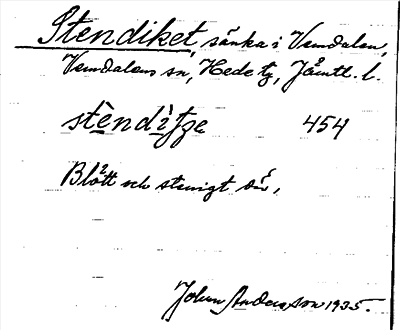 Stendiket, sänka i Vemdalen,
Vemdalens sn, Hede tg, Jämtl. l.
stèndìtʃe 454
Blött och stenigt
Johan Andersson 1935.